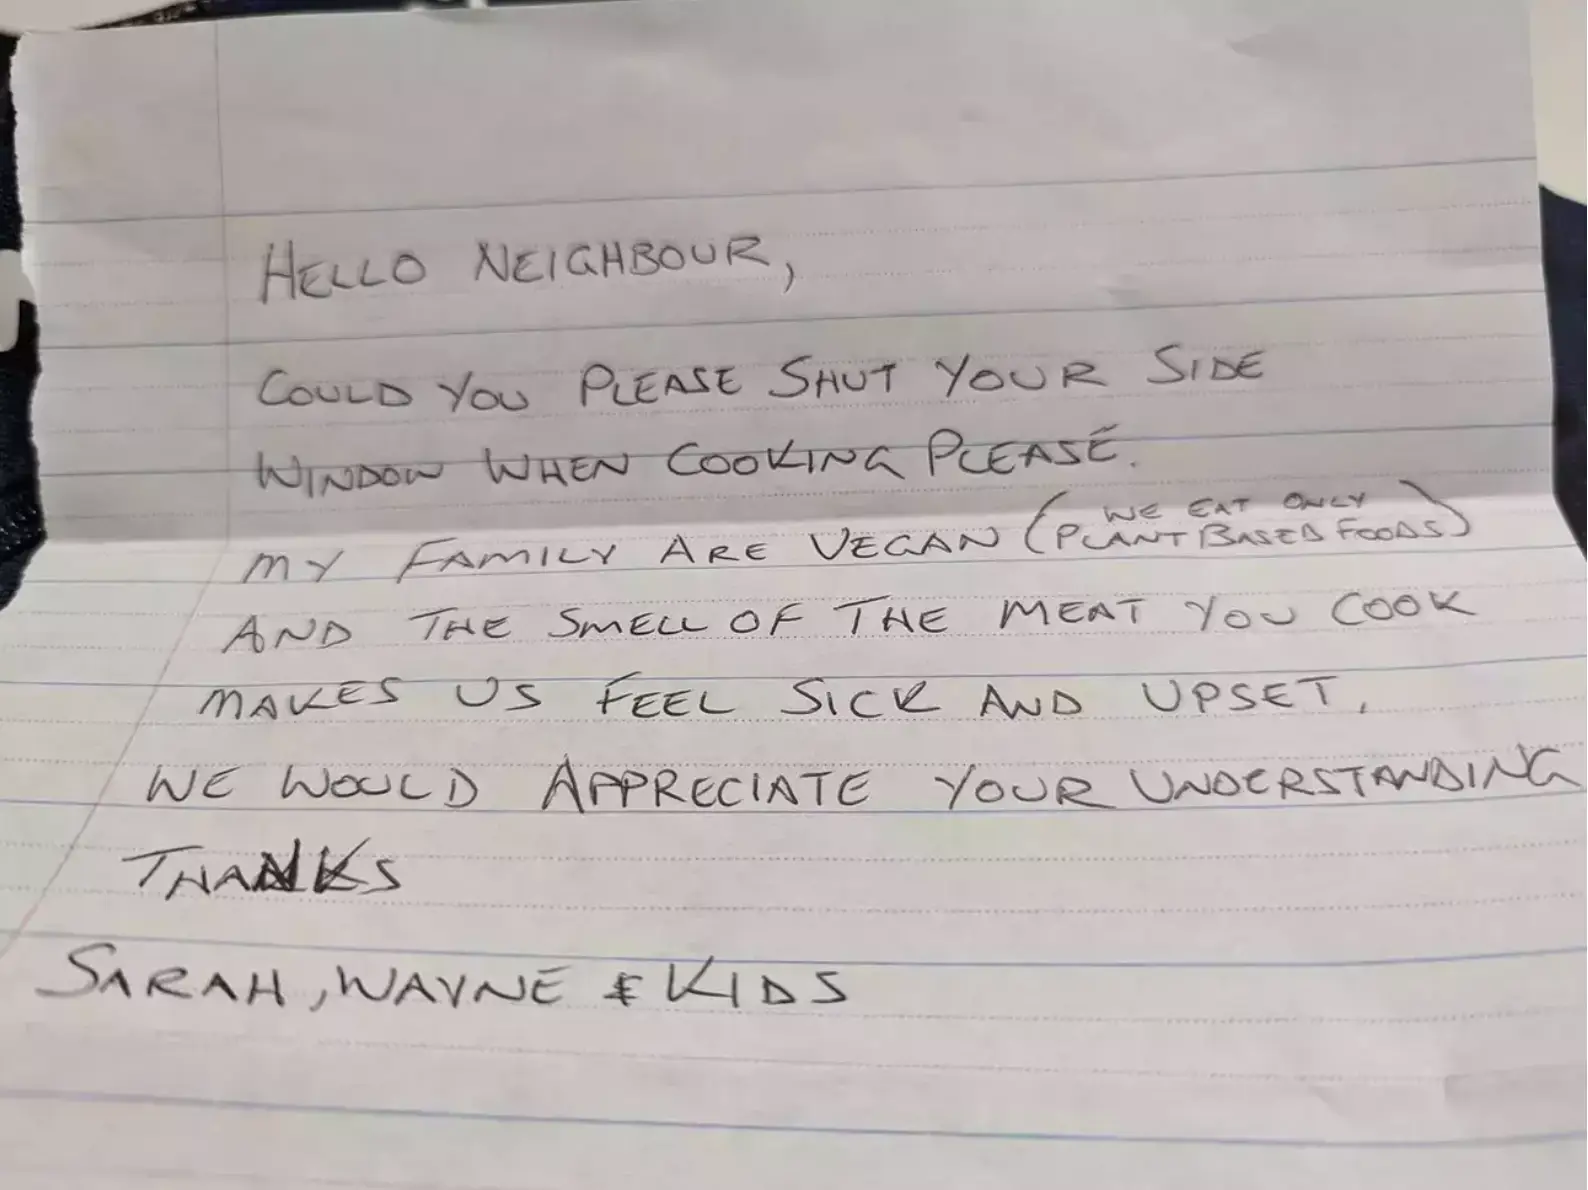 HELLO NEIGHBOUR,
COULD YOU PLEASE SHUT YOUR SIDE
WINDOW WHEN COOKING PLEASE.
MY FAMILY ARE VEGAN (WE EAT ONLY
PLANT BASED FOODS)
AND THE SMELL OF THE MEAT YOU COOK
MAKES US FEEL SICK AND UPSET,
WE WOULD APPRECIATE YOUR UNDERSTANDING
THANKS
SARAH, WAYNE & KIDS